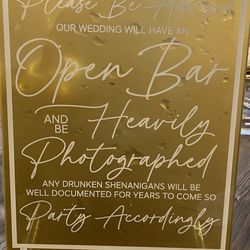 Please Be Advised
OUR WEDDING WILL HAVE AN
Open Bar
AND BE Heavily
Photographed
ANY DRUNKEN SHENANIGANS WILL BE
WELL DOCUMENTED FOR YEARS TO COME SO
Party Accordingly